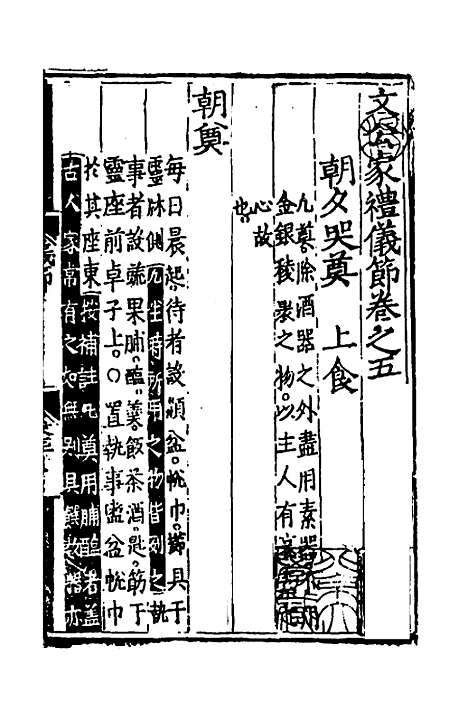 文公家禮儀節卷之五
朝夕哭奠　上食
凡奠除酒器之外盡用素器不用
金銀稜裹之物以主人有哀素之
心故
也
朝奠
每日晨起侍者設頮盆帨巾櫛具于
靈牀側凡生時所用之物皆列之執
事者設蔬果脯醢羹飯茶酒匙筯于
靈座前卓子上○置執事盥盆帨巾
於其座東按補註凡奠用脯醢者蓋
古人家常有之如無別具饌數器亦